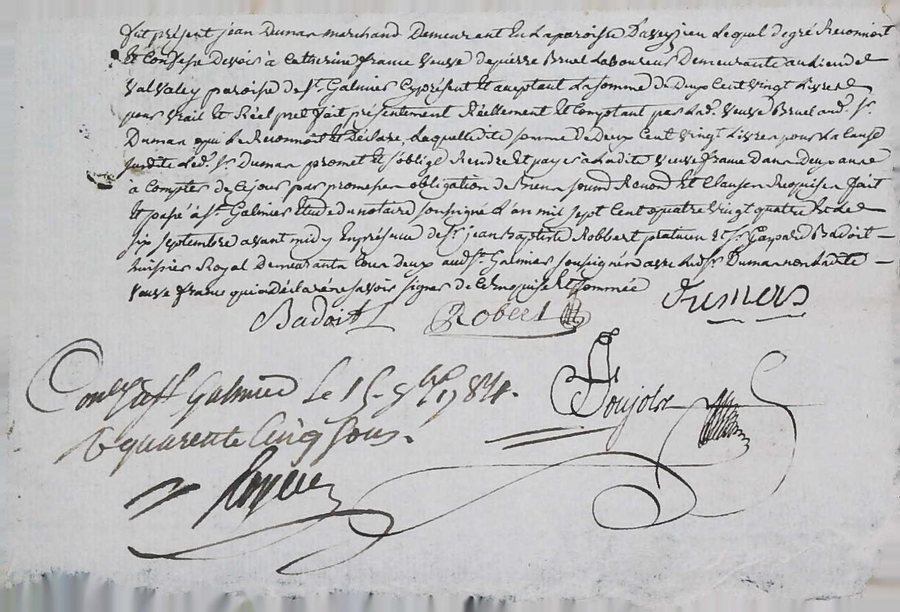 fut présent jean Dumas marchand Demeurant En la paroisse Daveyzieu Lequel de gré Reconnoit
Et Confesse Devoir à Catherine france Veuve de pierre Bruel Laboureur Demeurante au lieu de
Valvaley paroisse de St. Galmier Cy présent et aceptant La somme de Deux Cent Vingt Livres
pour vrait Et Réel prêt fait présentement Réellement Et Comptant par lad. Veuve Bruel aud. Sr.
Dumas qui Le Reconnoit Et Déclare, Laquelle dite somme de Deux Cent Vingt Livres pour La Cause
susdite led. Sr. Dumas promet Et s'oblige Rendre Et payer a Ladite Veuve france Dans Deux ans
à Compter de Ce jour par promesses obligation de Biens soumd Renond Et Clauses Requises fait
Et passé à St. Galmier Etude du notaire soussigné L'an mil sept Cent quatre Vingt quatre Et Le
six septembre avant midy En présence de Sr. jean Baptiste Robbert praticien Et Sr. Gaspard Badoit
huissier Royal Demeurants tous deux aud. St. Galmier soussignés avec led. Sr Dumas non Ladite
Veuve france qui a Déclaré ne savoir signer de Ce Requise Et sommée
Badoit Robert Dumas
Conlé à St Galmier Le 15 7bre 1784.
quarente Cinq sous.